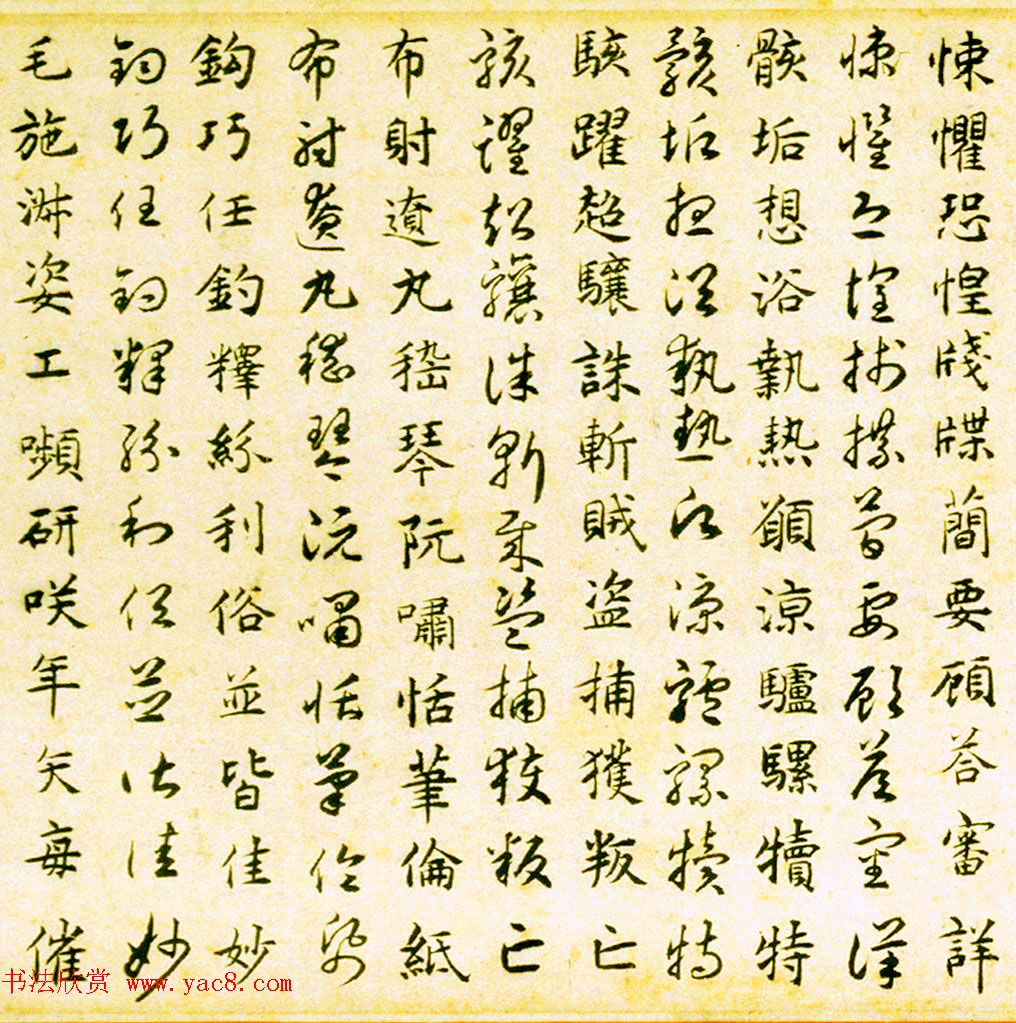 悚懼恐惶牋牒簡要顧荅審詳
悚懼恐惶牋牒簡要顧荅審詳
骸垢想浴執熱願涼驢騾犢特
骸垢想浴執熱願涼驢騾犢特
駭躍超驤誅斬賊盜捕獲叛亡
駭躍超驤誅斬賊盜捕獲叛亡
布射遼丸嵇琴阮嘯恬筆倫紙
布射遼丸嵇琴阮嘯恬筆倫紙
鈞巧任釣釋紛利俗並皆佳妙
鈞巧任釣釋紛利俗並皆佳妙
毛施淑姿工嚬研咲年矢每催
书法欣赏 www.yac8.com